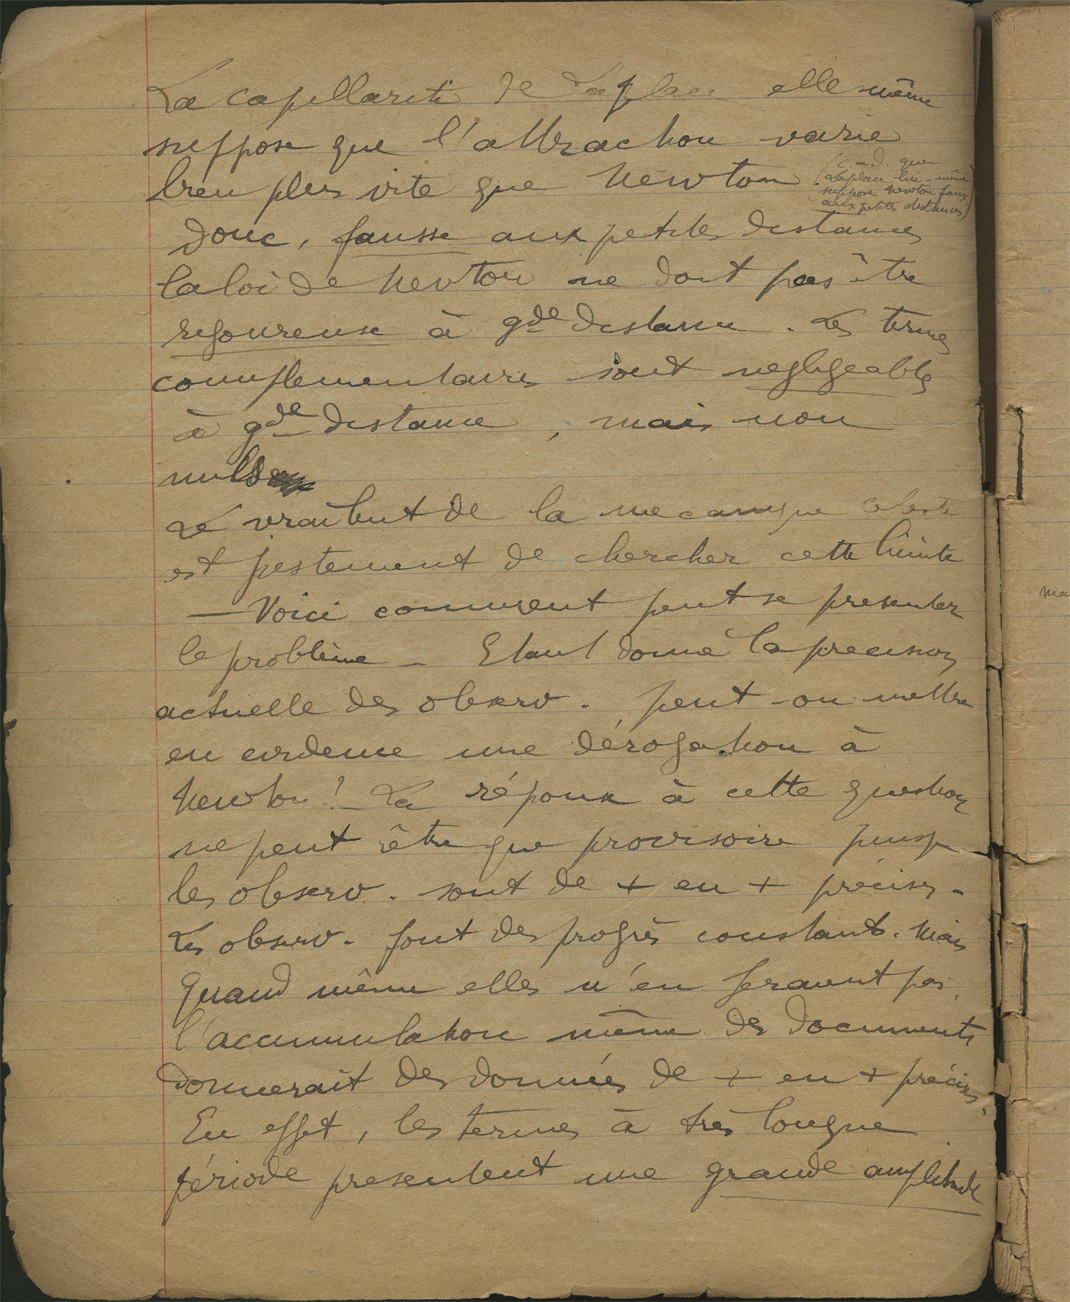 La capillarité de Laplace elle même
suppose que l'attraction varie
bien plus vite que Newton
(c-à-d. que
Laplace lui-même
suppose Newton faux
aux petites distances)
Donc, fausse aux petites distances
la loi de Newton ne doit pas être
rigoureuse à gde distance. Les termes
complementaires sont negligeables
à gde distance, mais non
nuls
Le vrai but de la mecanique celeste
est justement de chercher cette limite
— Voici comment peut se presenter
le problème — Etant donné la precision
actuelle des observ. peut-on mettre
en evidence une dérogation à
Newton? — La réponse à cette question
ne peut être que provisoire puisque
les observ. sont de + en + précises.
Les observ. font des progrès constants. Mais
quand même elles n'en feraient pas,
l'accumulation même des documents
donnerait des données de + en + précises.
En effet, les termes à très longue
période presentent une grande amplitude